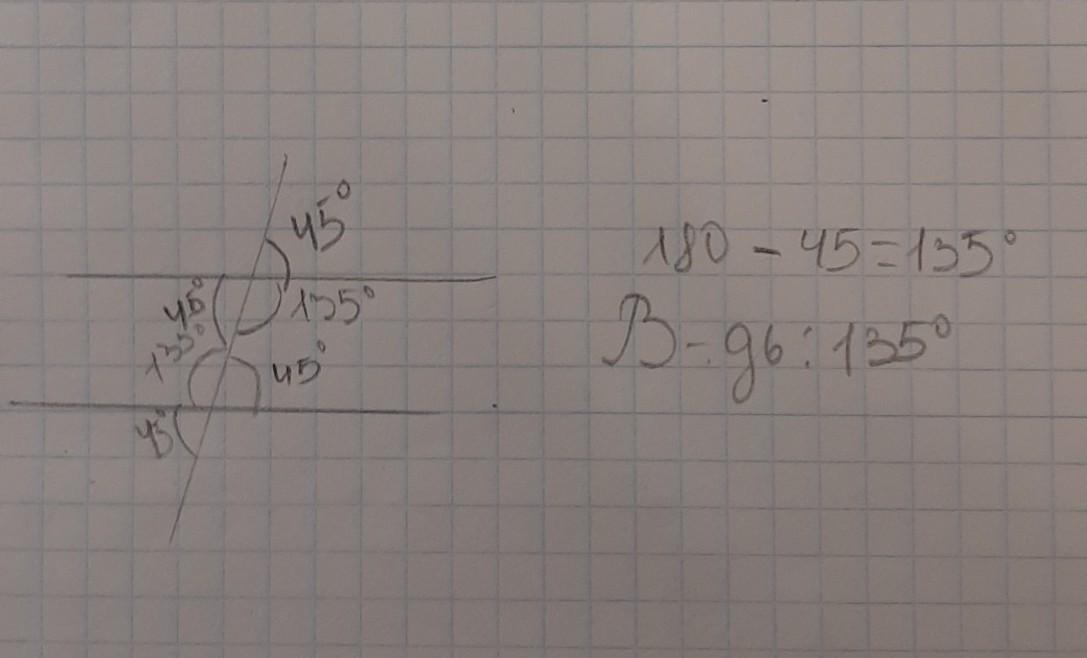 45°
180 - 45 = 135°
45° 135°
135° 45°
45°
В-дь: 135°